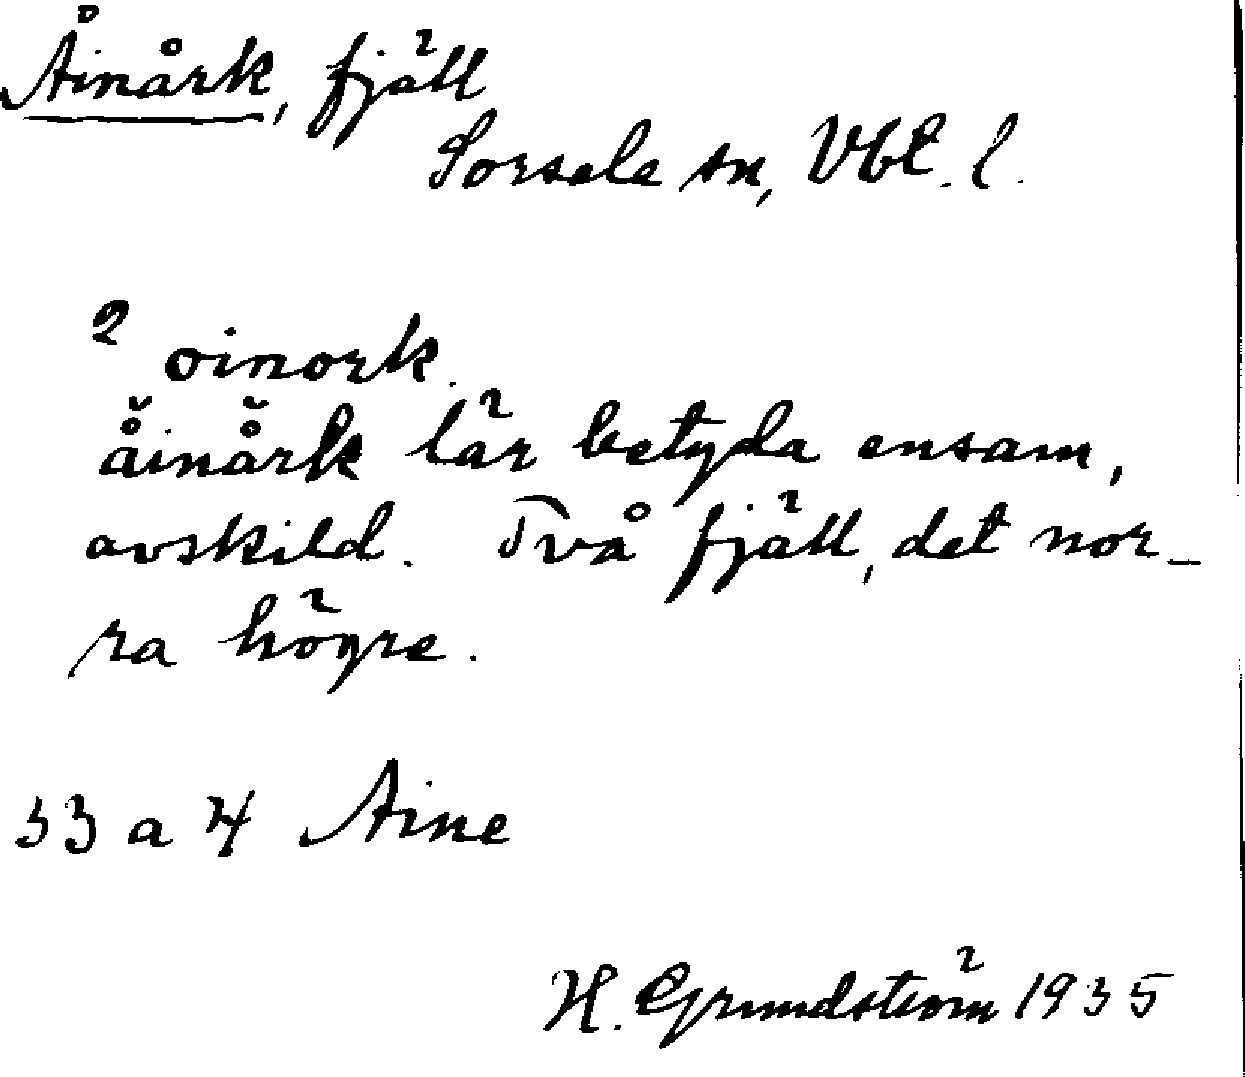 Åinårk, fjäll
Sorsele sn, Vbt. l.
2 oinork.
åĭnårk lär betyda ensam,
avskild. Två fjäll, det nor-
ra högre.
33 a 4 Aine
H. Grundström 1935